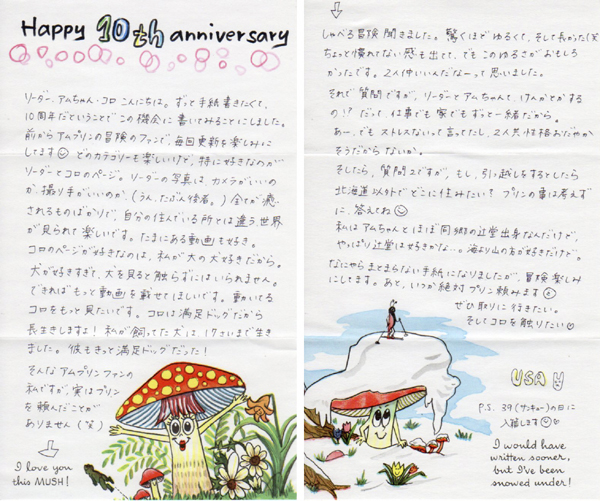 Happy 10th anniversary
リーダー、アムちゃん・コロ こんにちは。ずっと手紙書きたくて、
10周年だということで この機会に書いてみることにしました。
前からアムプリンの冒険のファンで、毎回更新を楽しみに
してます どのカテゴリーも楽しいけど、特に好きなのが
リーダーとコロのページ。リーダーの写真は、カメラがいいの
か、撮り手がいいのか、(うん、たぶん後者。) 全てが癒
されるものばかりで、自分の住んでいる所とは違う世界
が見られて楽しいです。たまにある動画も好き。
コロのページが好きなのは、私が大の犬好きだから。
犬が好きすぎて、犬を見ると触らずにはいられません。
できればもっと動画を載せてほしいです。動いてる
コロをもっと見たいです。コロは満足ドッグだから
長生きしますよ! 私が飼ってた犬は 17さいまで生き
ました。彼もきっと満足ドッグだった!
そんなアムプリンファンの
私ですが、実はプリン
を頼んだことが
ありません (笑)
I love you
this MUSH!
しゃべる冒険 聞きました。驚くほどゆるくて、そして長かった(笑)
ちょっと慣れてない感も出てて、でもこのゆるさがおもしろ
かったです。2人仲いいんだなーって思いました。
それで質問ですが、リーダーとアムちゃんて、ケンカとかする
の!? だって、仕事でも家でもずっと一緒だから。
あー、でもストレスないって言ってたし、2人共性格おだやか
そうだからないか。
そしたら、質問2ですが、もし、引っ越しをするとしたら
北海道以外でどこに住みたい? プリンの事は考えず
に、答えてね
私はアムちゃんとほぼ同郷の辻堂出身なんだけど、
やっぱり辻堂は好きかな…。海より山の方が好きだけど。
なにやらまとまらない手紙になりましたが、冒険楽しみ
にしてます。あと、いつか絶対プリン頼みます
ぜひ取りに行きたい。
そしてコロを触りたい
USA
P.S. 39(サンキュー)の日に
入籍します
I would have
written sooner,
but I've been
snowed under!